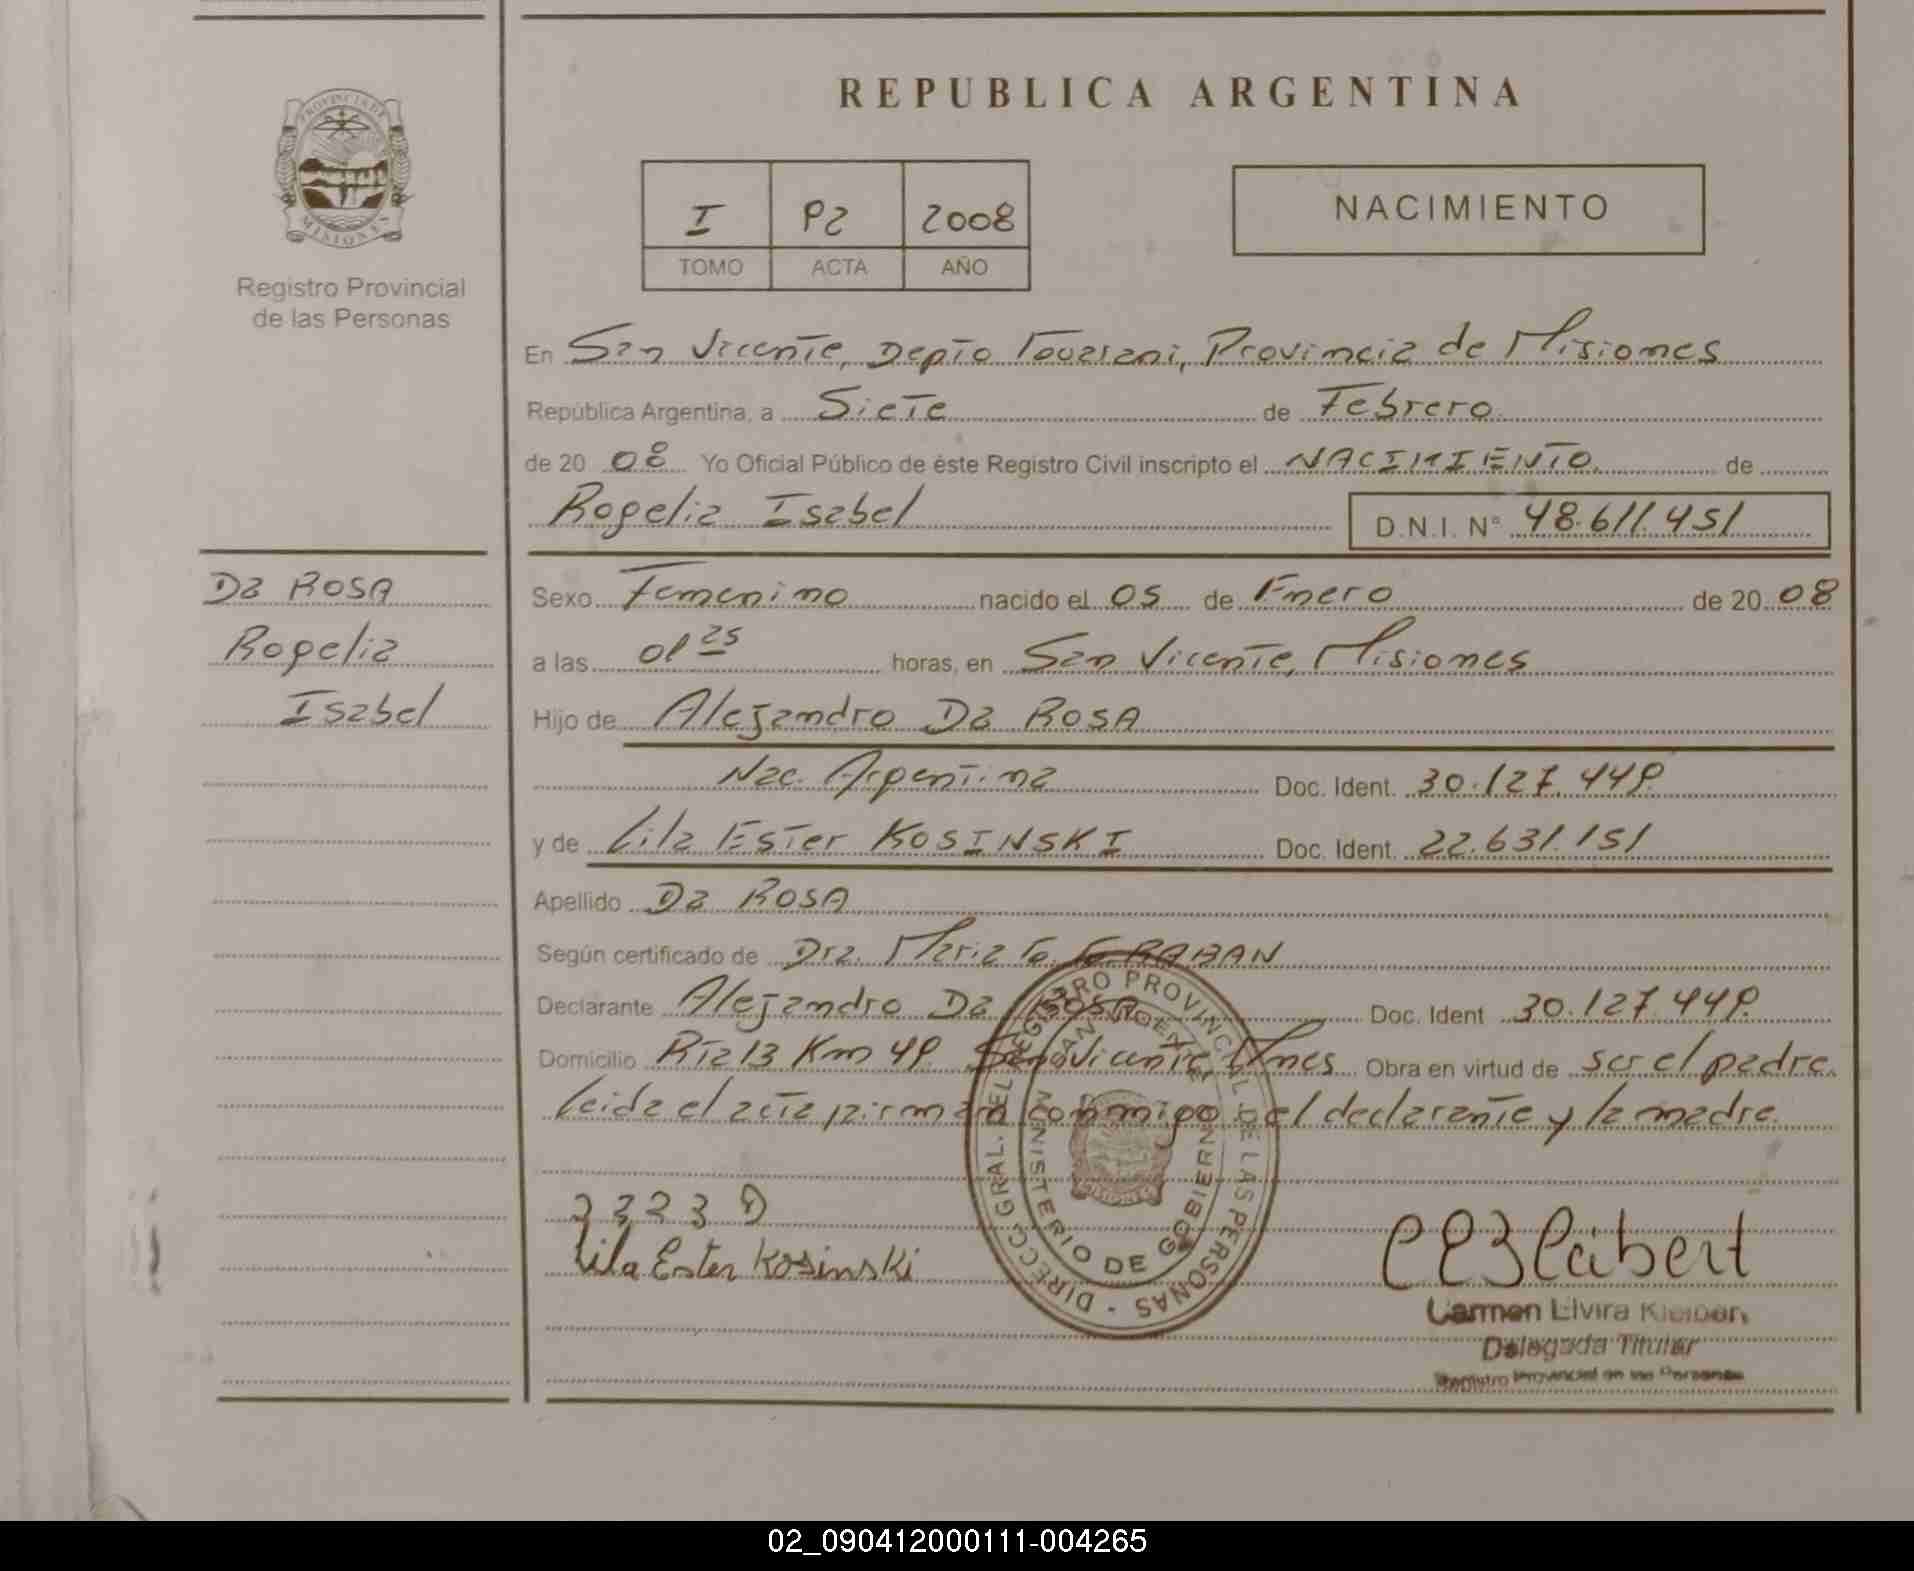 REPUBLICA ARGENTINA
PROVINCIA DE MISIONES
Registro Provincial
de las Personas
I 92 2008
TOMO ACTA AÑO
NACIMIENTO
En San Vicente, Depto Guarani, Provincia de Misiones
República Argentina, a Siete de Febrero
de 2008 Yo Oficial Público de éste Registro Civil inscripto el NACIMIENTO de
Rogelia Isabel D.N.I. N° 48.611.451
Da ROSA
Rogelia
Isabel
Sexo Femenino nacido el 05 de Enero de 2008
a las 01 25 horas, en San Vicente, Misiones
Hijo de Alejandro Da ROSA
Nac. Argentina Doc. Ident. 30.127.449
y de Lila Ester KOSINSKI Doc. Ident. 22.631.151
Apellido Da ROSA
Según certificado de Dra. Maria G. GRABAN
Declarante Alejandro Da ROSA Doc. Ident 30.127.449
Domicilio Rta 13 Km 49. San Vicente, Mnes Obra en virtud de ser el padre.
Leida el acta, firman conmigo, el declarante y la madre.
DIRECC. GRAL. DEL REGISTRO PROVINCIAL DE LAS PERSONAS
MINISTERIO DE GOBIERNO
MISIONES
Lila Ester Kosinski
Carmen Elvira
Delegada Titular
Registro Provincial de las Personas
02_090412000111-004265